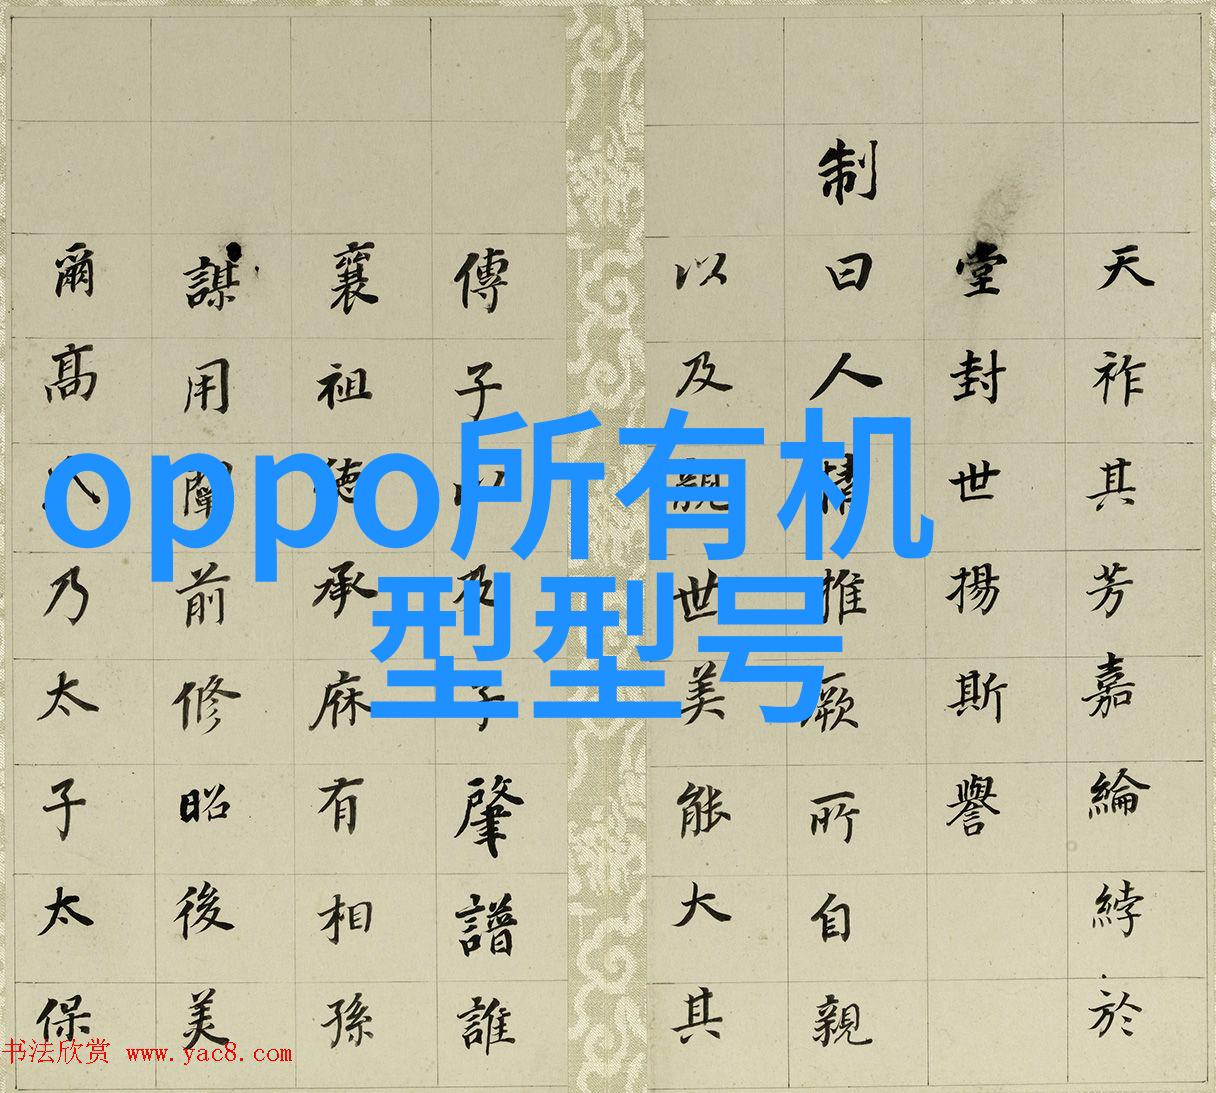 天祚其芳嘉綸綍於
堂封世揚斯譽
制曰人情推厥所自親
以及親世美能大其
傳子以及子肇譜誰
襄祖德承庥有相孫
謀用闡前修昭後美
爾高乃太子太保
oppo所有机
型型号
书法欣赏 www.yac8.com